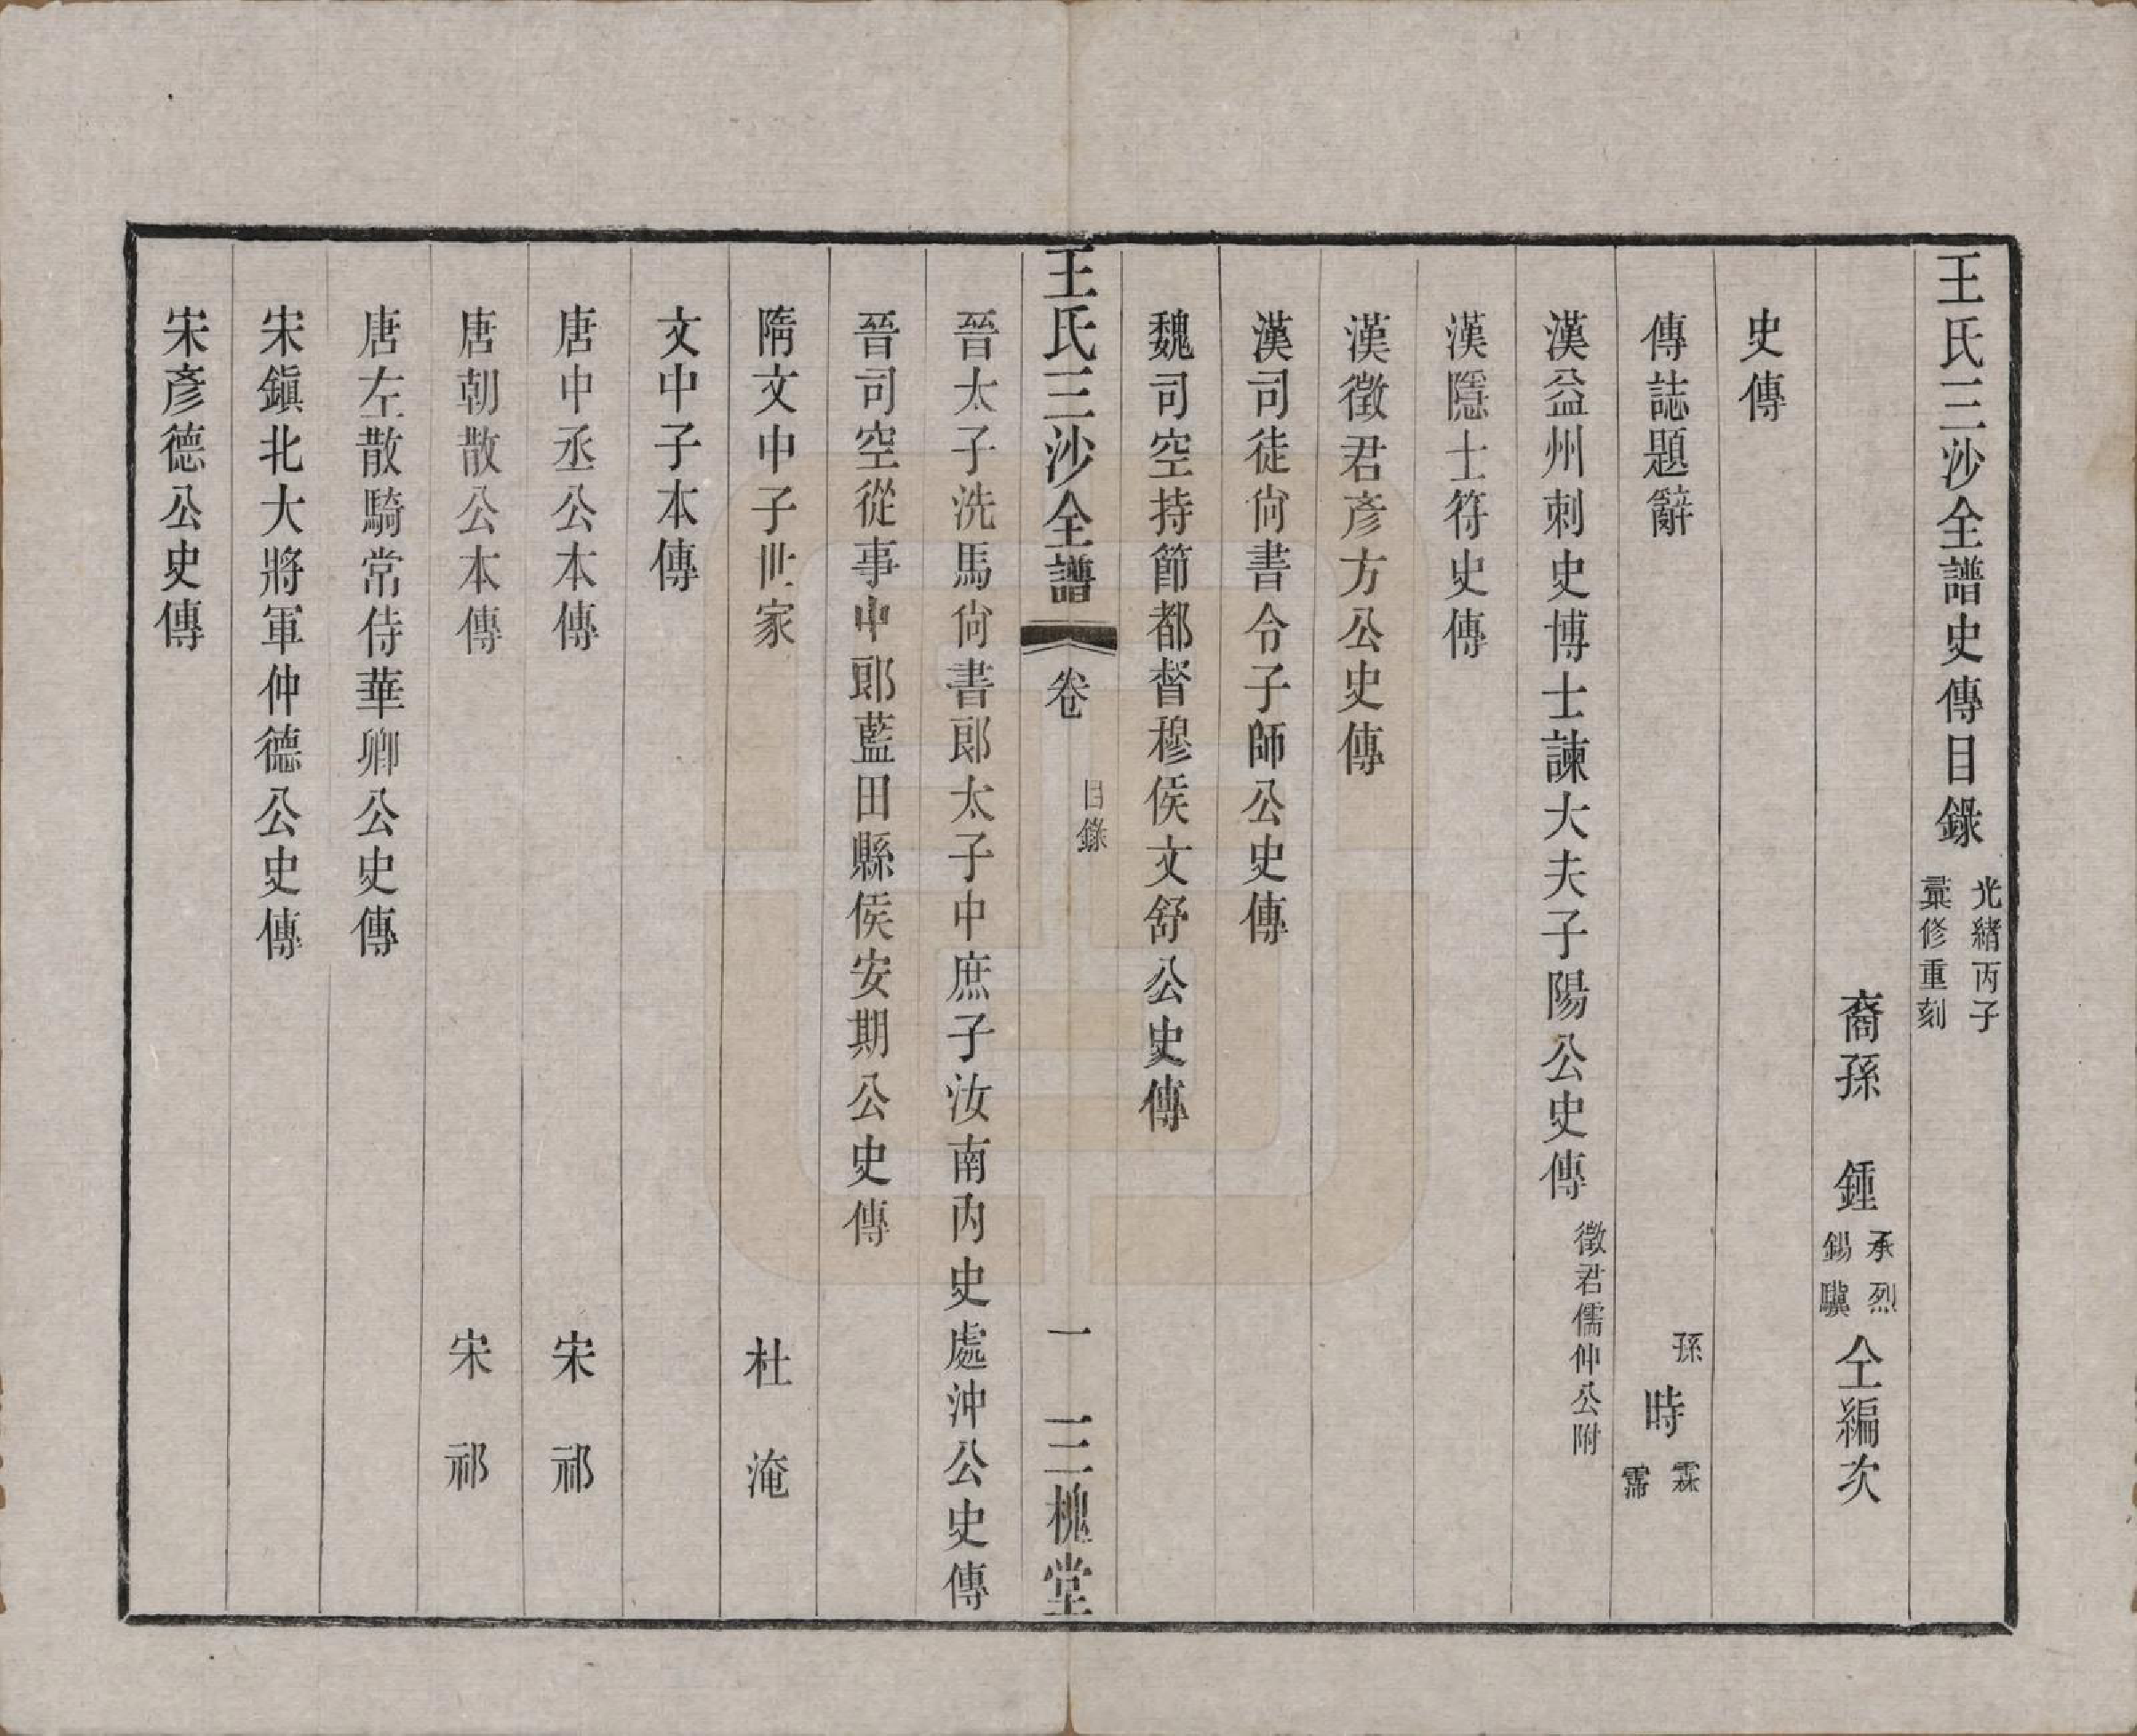 王氏三沙全譜史傳目錄 光緒丙子 彚修重刻
裔孫 鍾 承烈 錫驥 仝編次
史傳
傳誌題辭 孫 時 霖 霈
漢益州刺史博士諫大夫子陽公史傳 徵君儒仲公附
漢隱士符史傳
漢徵君彥方公史傳
漢司徒尙書令子師公史傳
魏司空持節都督穆侯文舒公史傳
王氏三沙全譜 卷 目錄 一 三槐堂
晉太子洗馬尙書郎太子中庶子汝南內史處沖公史傳
晉司空從事中郎藍田縣侯安期公史傳
隋文中子世家 杜淹
文中子本傳
唐中丞公本傳 宋祁
唐朝散公本傳 宋祁
唐左散騎常侍華卿公史傳
宋鎭北大將軍仲德公史傳
宋彥德公史傳